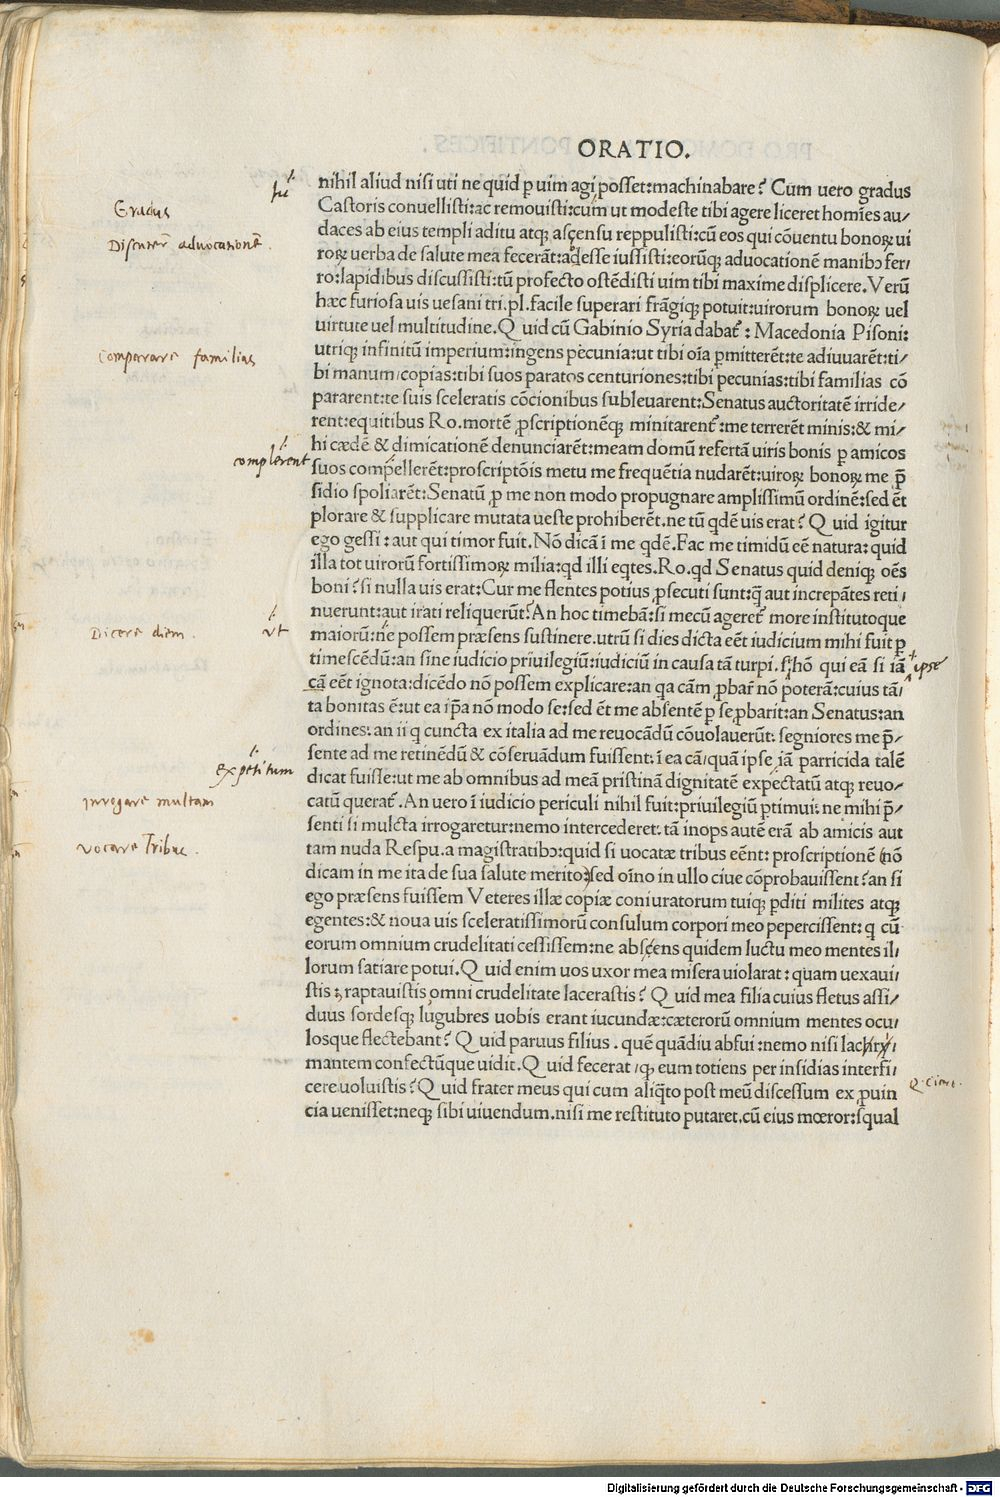 ORATIO.
nihil aliud nisi uti ne quid ꝑ uim agi posset:machinabare? Cum uero gradus
Castoris conuellisti:ac remouisti:cum ut modeste tibi agere liceret homīes au/
daces ab eius templi aditu atqꝫ ascensu reppulisti:cū eos qui cōuentu bonoꝝ ui
roꝝ uerba de salute mea fecerāt:adesse iussisti:eorūqꝫ aduocationē manibꝰ fer/
ro:lapidibus discussisti:tū profecto ostēdisti uim tibi maxime displicere.Verū
hæc furiosa uis uesani tri.pl.facile superari frāgiqꝫ potuit:uirorum bonoꝝ uel
uirtute uel multitudine.Quid cū Gabinio Syria dabat̄: Macedonia Pisoni:
utriqꝫ infinitū imperium:ingens pecunia:ut tibi oīa ꝑmitterēt:te adiuuarēt:ti/
bi manum/copias:tibi suos paratos centuriones:tibi pecunias:tibi familias cō
pararent:te suis sceleratis cōcionibus subleuarent:Senatus auctoritatē irride/
rent:equitibus Ro.mortē ꝓscriptionēqꝫ minitarent̄:me terrerēt minis:& mi/
hi cædē & dimicationē denunciarēt:meam domū refertā uiris bonis ꝑ amicos
suos compellerēt:proscriptōis metu me frequētia nudarēt:uiroꝝ bonoꝝ me p̄
sidio spoliarēt:Senatū ꝓ me non modo propugnare amplissimū ordinē:sed ēt
plorare & supplicare mutata ueste prohiberēt.ne tū qdē uis erat? Quid igitur
ego gessi: aut qui timor fuit. Nō dicā ī me qdē.Fac me timidū eē natura: quid
illa tot uirorū fortissimoꝝ milia:qd illi eqtes.Ro.qd Senatus quid deniqꝫ oēs
boni? si nulla uis erat:Cur me flentes potius ꝓsecuti sunt:q̄ aut increpātes reti
nuerunt:aut irati reliquerūt?An hoc timebā:si mecū ageret̄ more institutoque
maiorū:ne possem præsens sustinere.utrū si dies dicta eēt iudicium mihi fuit ꝑ
timescēdū:an sine iudicio priuilegiū:iudiciū in causa tā turpi.s.hō qui eā si iā
cā eēt ignota:dicēdo nō possem explicare:an qa cām ꝓbar̄ nō poterā:cuius tā/
ta bonitas ē:ut ea ip̄a nō modo se:sed ēt me absentē ꝑ se ꝓbarit:an Senatus:an
ordines: an ii q cuncta ex italia ad me reuocādū cōuolauerūt: segniores me p̄/
sente ad me retinēdū & cōseruādum fuissent:ī ea cā/quā ipse iā parricida talē
dicat fuisse:ut me ab omnibus ad meā pristinā dignitatē expectatū atqꝫ reuo/
catū querat̄.An uero ī iudicio periculi nihil fuit:priuilegiū ꝑtimui: ne mihi p̄/
senti si mulcta irrogaretur:nemo intercederet: tā inops autē erā ab amicis aut
tam nuda Respu.a magistratibꝰ:quid si uocatæ tribus eēnt: proscriptionē (nō
dicam in me ita de sua salute merito)sed oīno in ullo ciue cōprobauissent?an si
ego præsens fuissem Veteres illæ copiæ coniuratorum tuiqꝫ ꝑditi milites atqꝫ
egentes:& noua uis sceleratissimorū consulum corpori meo pepercissent: q cū
eorum omnium crudelitati cessissem:ne abscens quidem luctu meo mentes il/
lorum satiare potui.Quid enim uos uxor mea misera uiolarat: quam uexaui/
stis: raptauistis omni crudelitate lacerastis? Quid mea filia cuius fletus assi/
duus sordesqꝫ lugubres uobis erant iucundæ:cæterorū omnium mentes ocu/
losque flectebant? Quid paruus filius. quē quādiu abfui:nemo nisi lachry/
mantem confectūque uidit.Quid fecerat/qꝫ eum totiens per insidias interfi/
cere uoluistis?Quid frater meus qui cum aliq̄to post meū discessum ex ꝓuin
cia uenisset:neqꝫ sibi uiuendum.nisi me restituto putaret.cū eius mœror:squal
Gradus
Discutere advocationē.
Comparare familias
complerent
Dicere diem.
vt
ipse
expetitum
irrogare multam
vocare Tribus.
Q. Cicero.
Digitalisierung gefördert durch die Deutsche Forschungsgemeinschaft - DFG